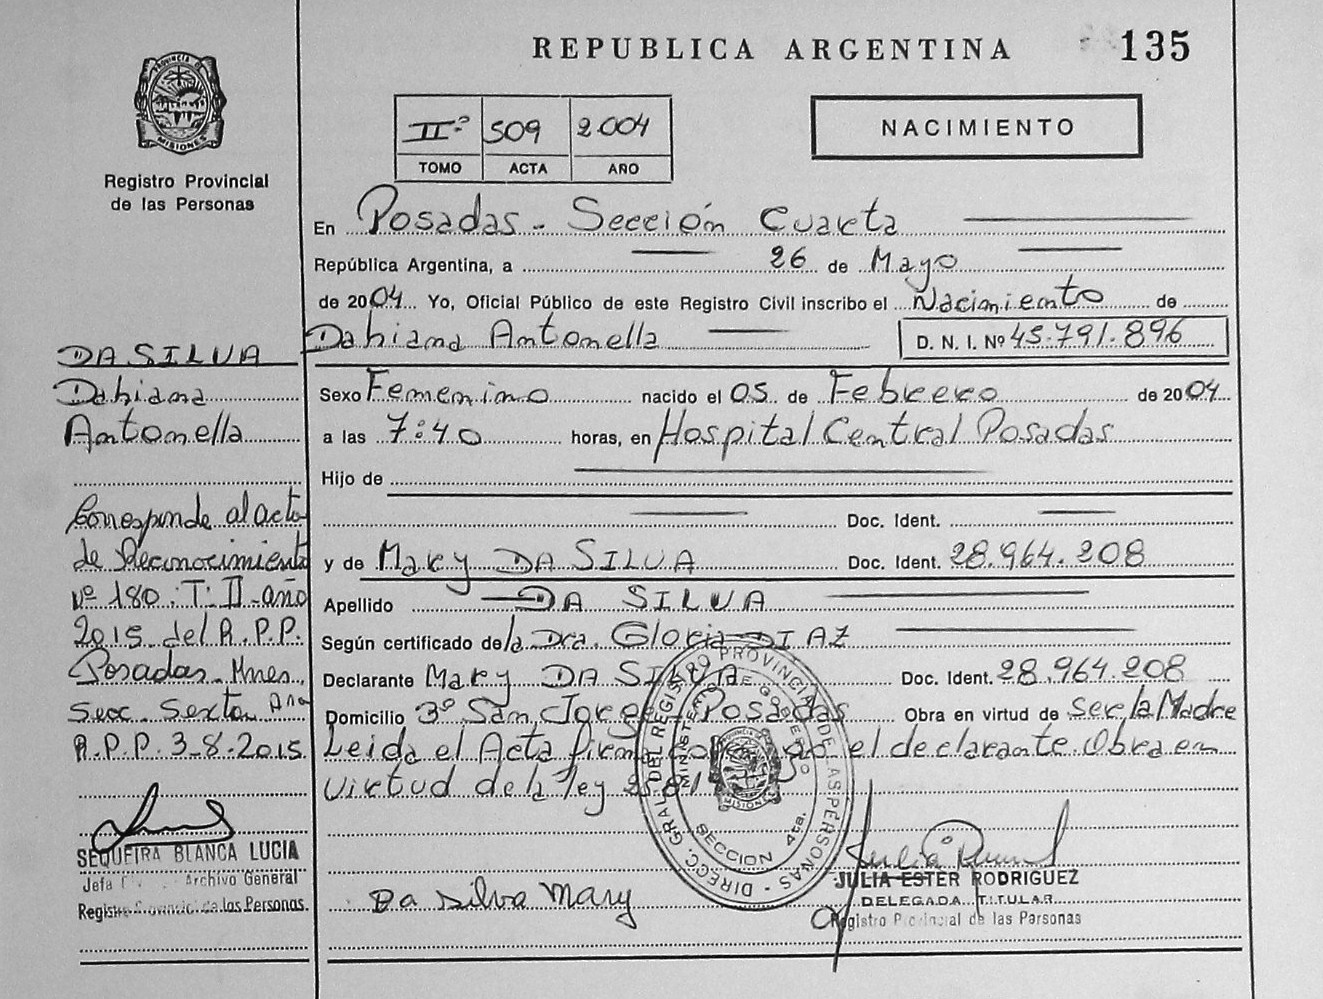 REPUBLICA ARGENTINA
135
PROVINCIA D MISIONES
Registro Provincial
de las Personas
IIº 509 2.004
TOMO ACTA AÑO
NACIMIENTO
En Posadas - Sección Cuarta
República Argentina, a 26 de Mayo
de 2004 Yo, Oficial Público de este Registro Civil inscribo el Nacimiento de
Dahiana Antonella D. N. I. Nº 45.791.896
Sexo Femenino nacido el 05 de Febrero de 2004
a las 7:40 horas, en Hospital Central Posadas
Hijo de
Doc. Ident.
y de Mary DA SILVA Doc. Ident. 28.964.208
Apellido DA SILVA
Según certificado de la Dra. Gloria DIAZ
Declarante Mary DA SILVA Doc. Ident. 28.964.208
Domicilio 3º San Jorge - Posadas Obra en virtud de Ser la Madre
Leida el Acta firma el declarante. Obra en
Virtud de la ley
Da Silva Mary
JULIA ESTER RODRIGUEZ
DELEGADA TITULAR
Registro Provincial de las Personas
DA SILVA
Dahiana
Antonella
Corresponde al acta
de Reconocimiento
Nº 180. T: II - año
2015 del R.P.P.
Posadas - Mnes.
Secc. Sexta
R.P.P. 3-8-2015
SEQUEIRA BLANCA LUCIA
Jefa Archivo General
Registro Provincial de las Personas
DIRECC. GRAL. DEL REGISTRO PROVINCIAL DE LAS PERSONAS
MINISTERIO DE GOBIERNO
MISIONES
SECCION 4ta.